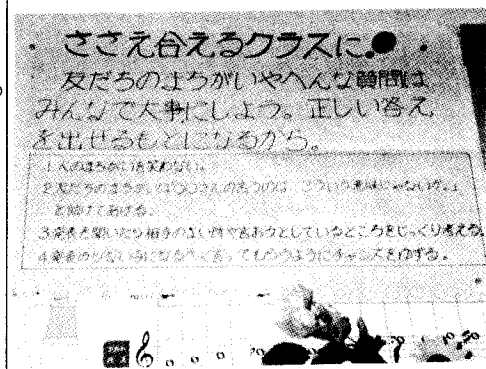 ささえ合えるクラスに。
友だちのまちがいやへんな質問は
みんなで大事にしよう。正しい答え
を出せるもとになるから。
1.人のまちがいを笑わない。
2.友だちのまちがいは「〇〇さんの言うのは、こういう意味じゃないか。」
と助けてあげる。
3.発表を聞いたり相手のよい所や言おうとしているところをじっくり考える。
4.発表の少ない人になるべく言ってもらうようにチャンスをゆずる。